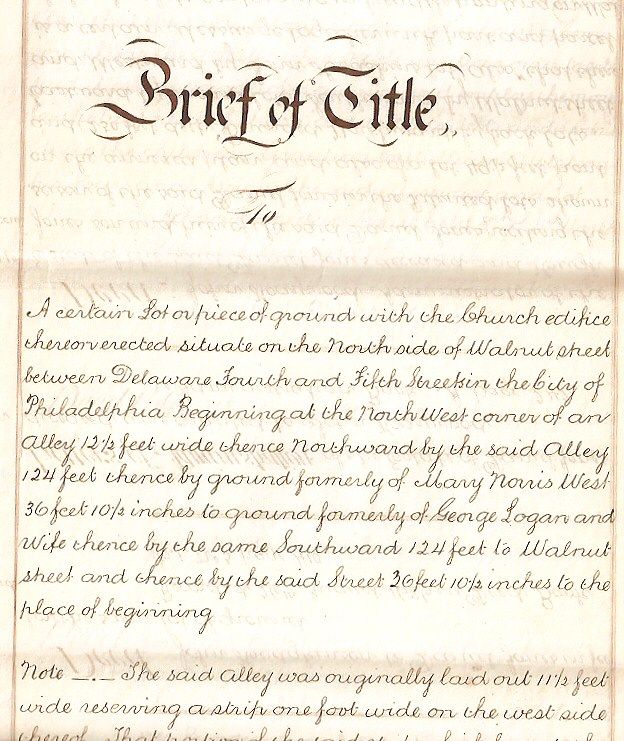 Brief of Title,,
To
A certain Lot or piece of ground with the Church edifice
thereon erected situate on the North side of Walnut street
between Delaware Fourth and Fifth Streets in the City of
Philadelphia Beginning at the North West corner of an
Alley 12½ feet wide thence Northward by the said Alley
124 feet thence by ground formerly of Mary Norris West
36 feet 10½ inches to ground formerly of George Logan and
Wife thence by the same Southward 124 feet to Walnut
street and thence by the said Street 36 feet 10½ inches to the
place of beginning
Note _._ The said Alley was originally laid out 11½ feet
wide reserving a strip one foot wide on the west side
thereof. That portion of the said